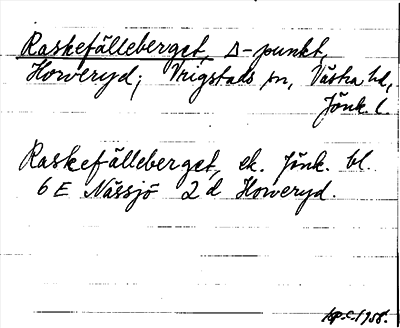 Raskefälleberget, Δ-punkt,
Howeryd; Vrigstads sn, Västra hd,
Jönk. l.
Raskefälleberget, ek. Jönk. bl.
6 E Nässjö 2 d Howeryd.
1958.